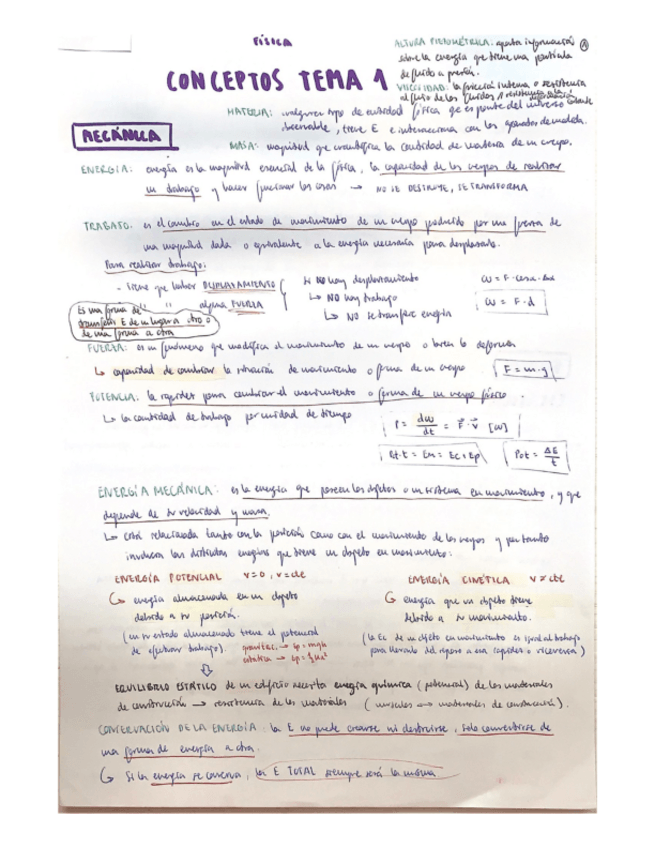 FÍSICA
ALTURA PIEZOMÉTRICA: aporta información
sobre la energía que tiene una partícula
de fluido a presión.
CONCEPTOS TEMA 1
VISCOSIDAD: la fricción interna o resistencia
al flujo de los fluidos / resistencia a la deformación
MATERIA: cualquier tipo de entidad física que es parte del universo
observable, tiene E e interacciona con los aparatos de medida.
MECÁNICA
MASA: magnitud que cuantifica la cantidad de materia de un cuerpo.
ENERGÍA: energía es la magnitud esencial de la física, la capacidad de los cuerpos de realizar
un trabajo y hacer funcionar las cosas → NO SE DESTRUYE, SE TRANSFORMA
TRABAJO: es el cambio en el estado de movimiento de un cuerpo producido por una fuerza de
una magnitud dada o equivalente a la energía necesaria para desplazarlo.
Para realizar trabajo:
- tiene que haber DESPLAZAMIENTO
" " alguna FUERZA
Si NO hay desplazamiento
↳ NO hay trabajo
↳ NO se transfiere energía
ω = F · d
Es una forma de
transferir E de un lugar a otro o
de una forma a otra
FUERZA: es un fenómeno que modifica el movimiento de un cuerpo o bien lo deforma
↳ capacidad de cambiar la situación de movimiento o forma de un cuerpo
F = m · g
POTENCIA: la rapidez para cambiar el movimiento o forma de un cuerpo físico
↳ la cantidad de trabajo por unidad de tiempo
P = dω/dt = F · v [ω]
Em = Ec + Ep
Pot = ΔE/t
ENERGÍA MECÁNICA: es la energía que poseen los objetos o un sistema en movimiento, y que
depende de su velocidad y masa.
↳ está relacionada tanto con la posición como con el movimiento de los cuerpos y por tanto
involucra las distintas energías que tiene un objeto en movimiento:
ENERGÍA POTENCIAL v=0, v=cte
↳ energía almacenada en un objeto
debido a su posición.
(en su estado almacenado tiene el potencial
de efectuar trabajo).
gravitac. → Ep = mgh
elástica → Ep = ½kx²
ENERGÍA CINÉTICA v≠cte
↳ energía que un objeto tiene
debido a su movimiento.
(la Ec de un objeto en movimiento es igual al trabajo
para llevarlo del reposo a esa rapidez o viceversa)
EQUILIBRIO ESTÁTICO de un edificio necesita energía química (potencial) de los materiales
de construcción → resistencia de los materiales (músculos ↔ materiales de construcción).
CONSERVACIÓN DE LA ENERGÍA: la E no puede crearse ni destruirse, solo convertirse de
una forma de energía a otra.
↳ Si la energía se conserva, la E TOTAL siempre será la misma